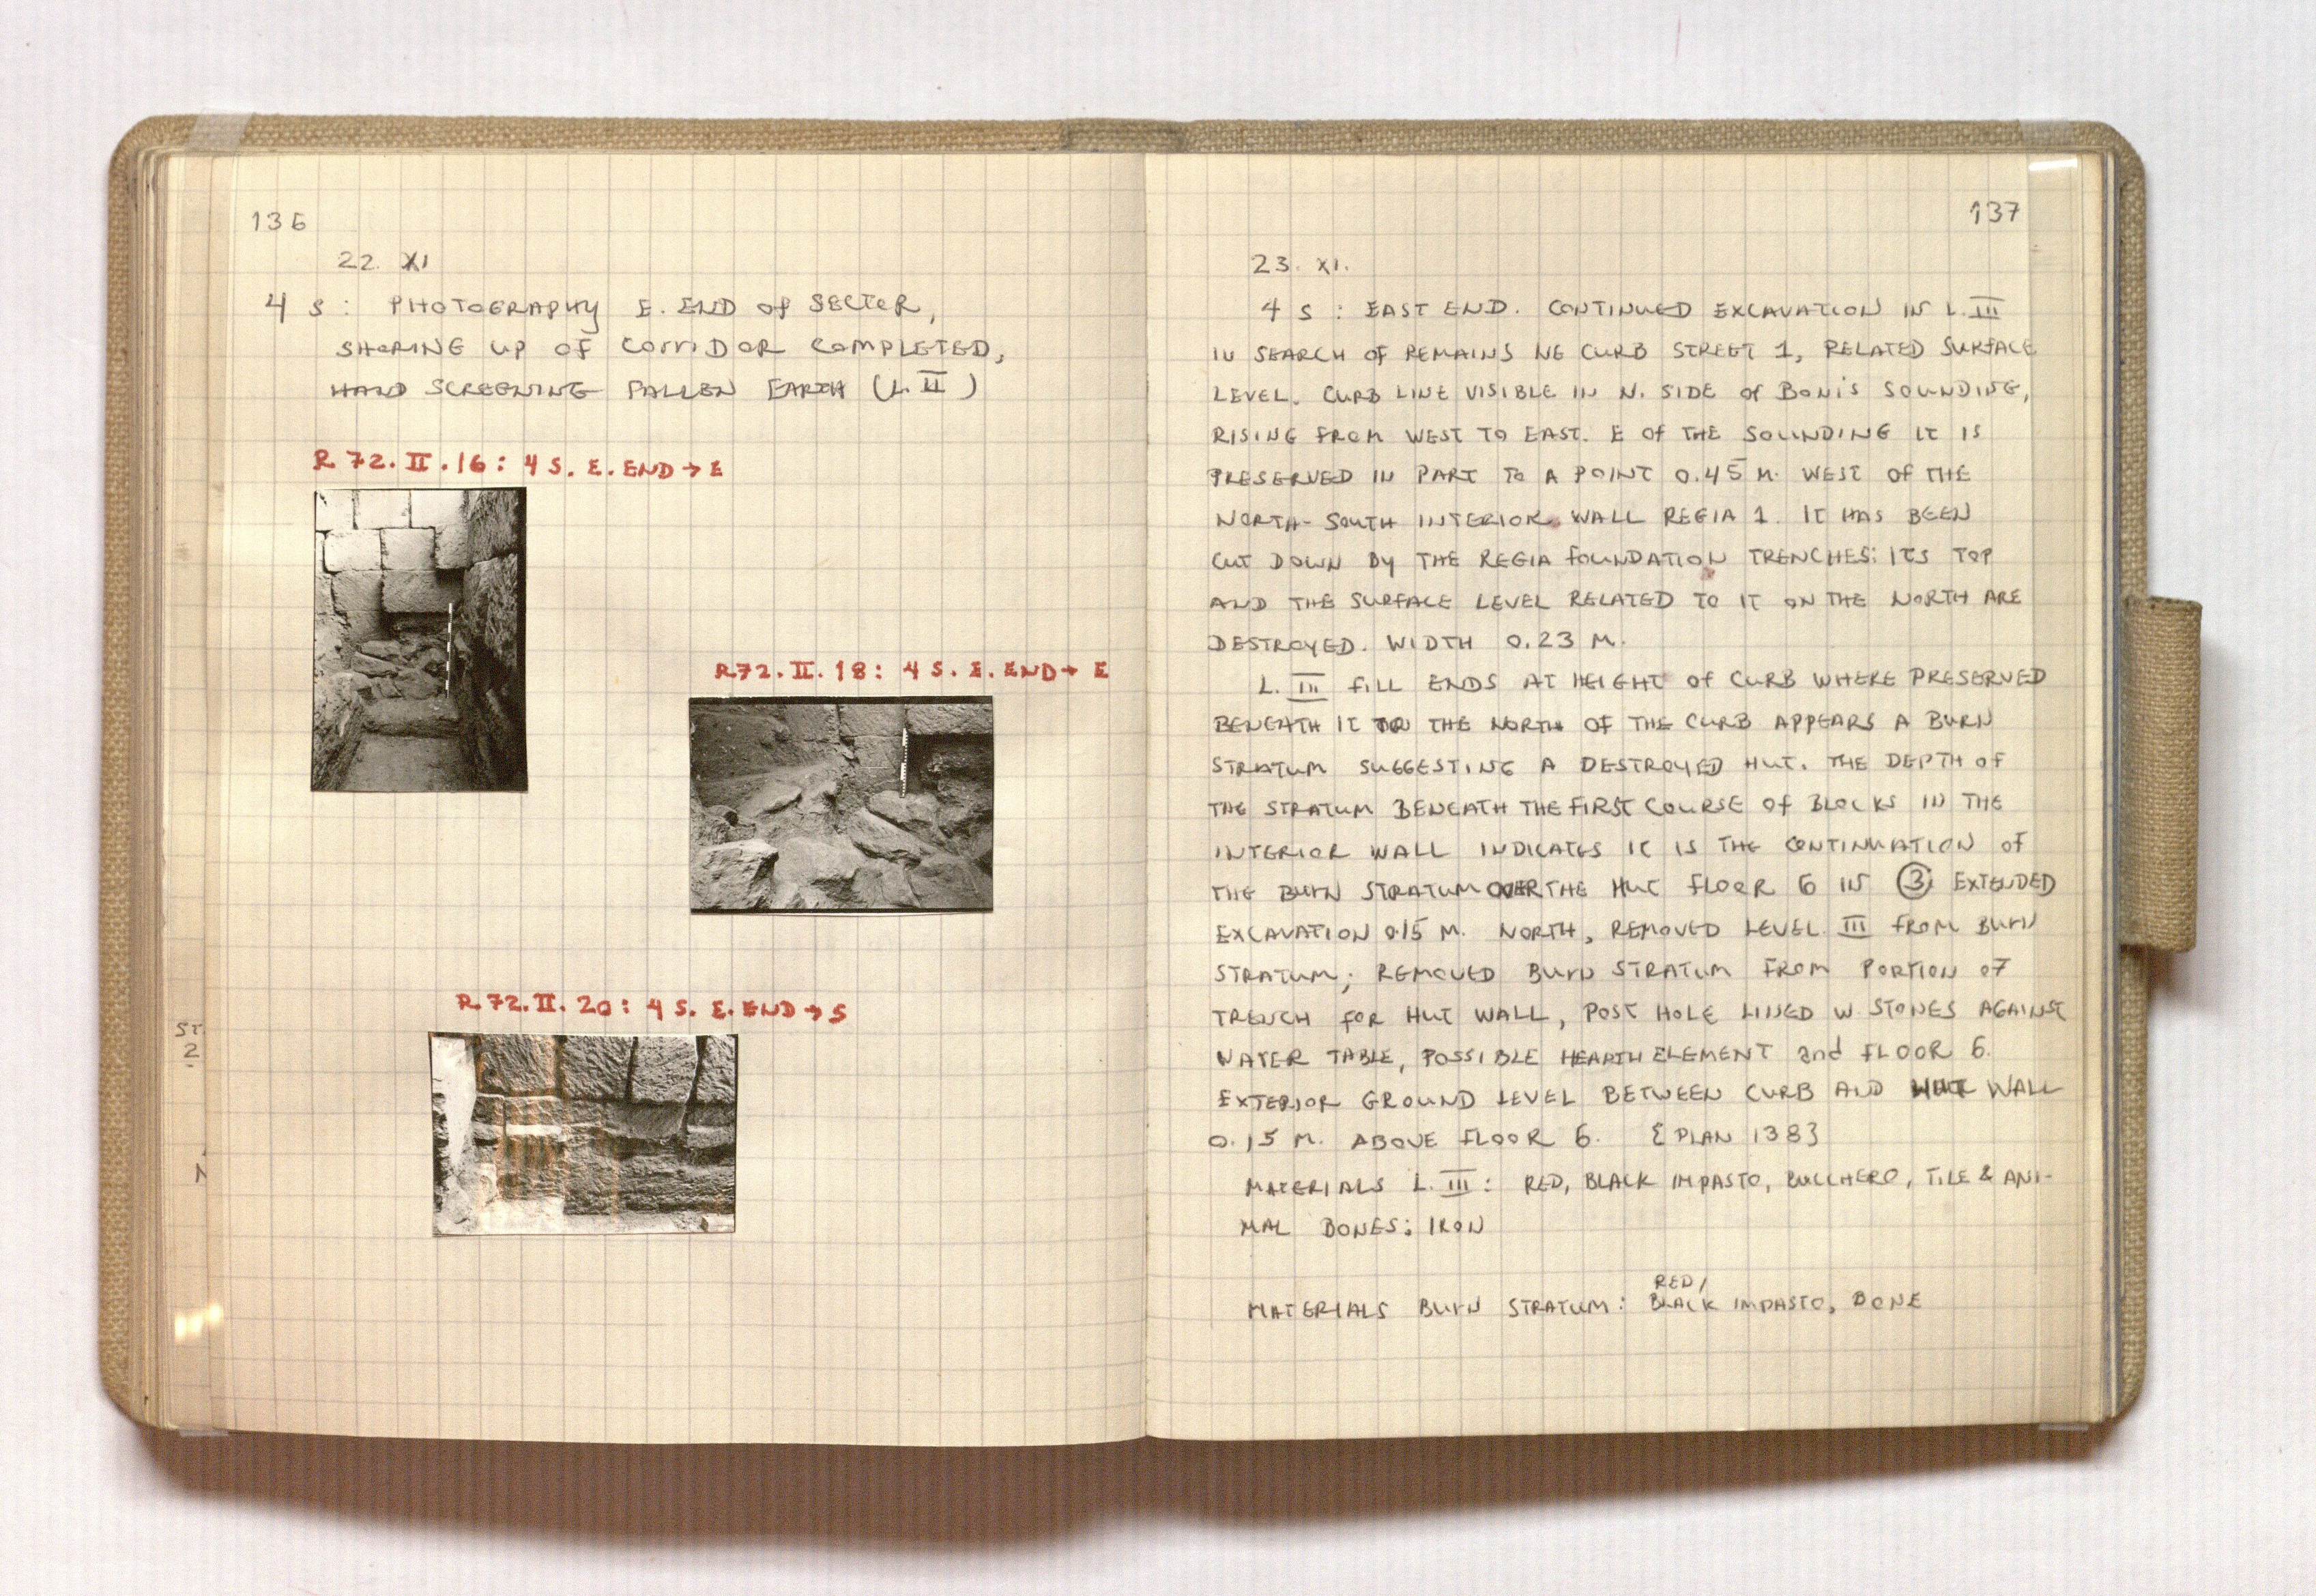 136
22. XI
4 S: PHOTOGRAPHY E. END OF SECTOR,
SHORING UP OF CORRIDOR COMPLETED,
HAND SCREENING FALLEN EARTH (L. II)
R 72.II.16: 4 S. E. END → E
R72.II.18: 4 S. E. END → E
R 72.II.20: 4 S. E. END → S
ST
2
N
137
23. XI.
4 S: EAST END. CONTINUED EXCAVATION IN L. III
IN SEARCH OF REMAINS NE CURB STREET 1, RELATED SURFACE
LEVEL. CURB LINE VISIBLE IN N. SIDE OF BONI'S SOUNDING,
RISING FROM WEST TO EAST. E OF THE SOUNDING IT IS
PRESERVED IN PART TO A POINT 0.45 M. WEST OF THE
NORTH-SOUTH INTERIOR WALL REGIA 1. IT HAS BEEN
CUT DOWN BY THE REGIA FOUNDATION TRENCHES: ITS TOP
AND THE SURFACE LEVEL RELATED TO IT ON THE NORTH ARE
DESTROYED. WIDTH 0.23 M.
L. III FILL ENDS AT HEIGHT OF CURB WHERE PRESERVED
BENEATH IT TO THE NORTH OF THE CURB APPEARS A BURN
STRATUM SUGGESTING A DESTROYED HUT. THE DEPTH OF
THE STRATUM BENEATH THE FIRST COURSE OF BLOCKS IN THE
INTERIOR WALL INDICATES IT IS THE CONTINUATION OF
THE BURN STRATUM OVER THE HUT FLOOR 6 IN ③ EXTENDED
EXCAVATION 0.15 M. NORTH, REMOVED LEVEL III FROM BURN
STRATUM; REMOVED BURN STRATUM FROM PORTION OF
TRENCH FOR HUT WALL, POST HOLE LINED W. STONES AGAINST
WATER TABLE, POSSIBLE HEARTH ELEMENT and FLOOR 6.
EXTERIOR GROUND LEVEL BETWEEN CURB AND HUT WALL
0.15 M. ABOVE FLOOR 6. {PLAN 138}
MATERIALS L. III: RED, BLACK IMPASTO, BUCCHERO, TILE & ANI-
MAL BONES: IRON
RED/
MATERIALS BURN STRATUM: BLACK IMPASTO, BONE